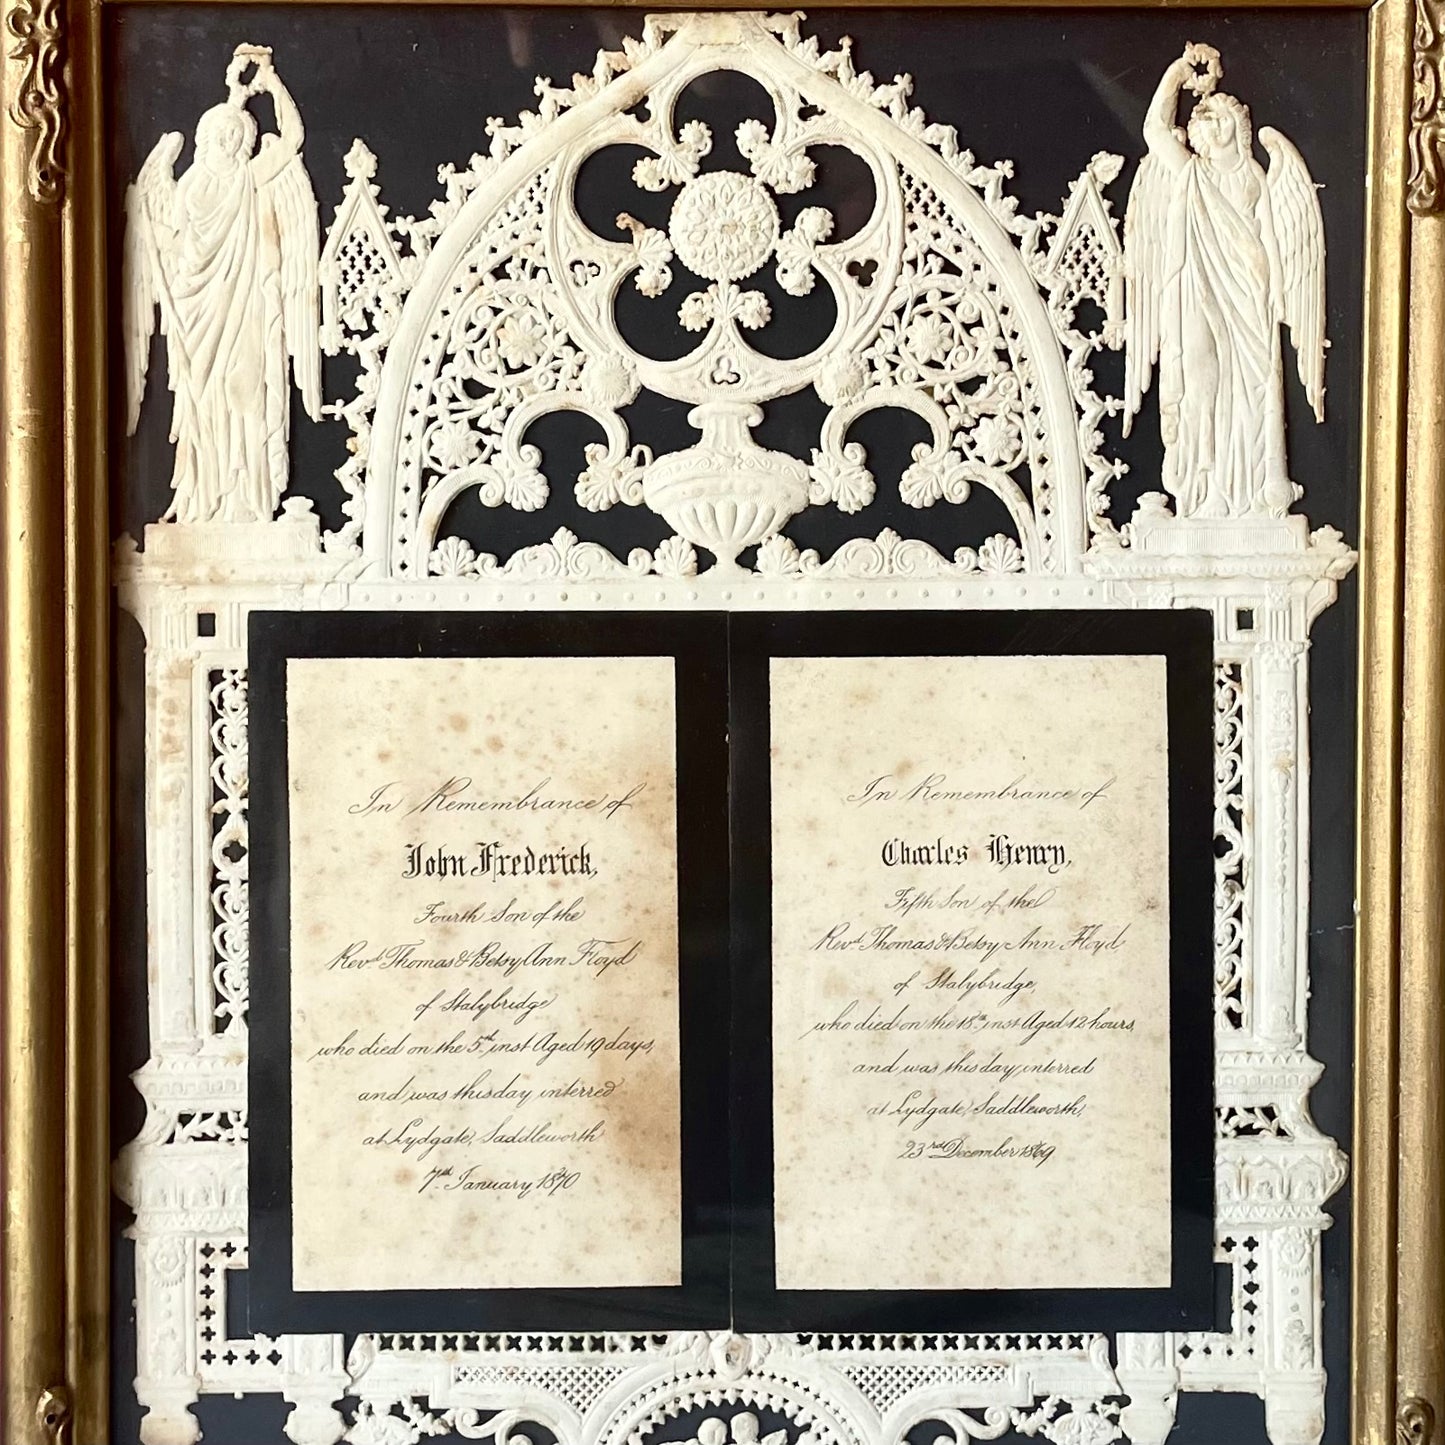 In Remembrance of
John Frederick,
Fourth Son of the
Revd. Thomas & Betsy Ann Floyd
of Stalybridge
who died on the 5th inst Aged 19 days,
and was this day interred
at Lydgate, Saddleworth
7th January 1870
In Remembrance of
Charles Henry,
Fifth Son of the
Revd Thomas & Betsy Ann Floyd
of Stalybridge,
who died on the 18th inst Aged 12 hours,
and was this day interred
at Lydgate, Saddleworth,
23rd December 1869